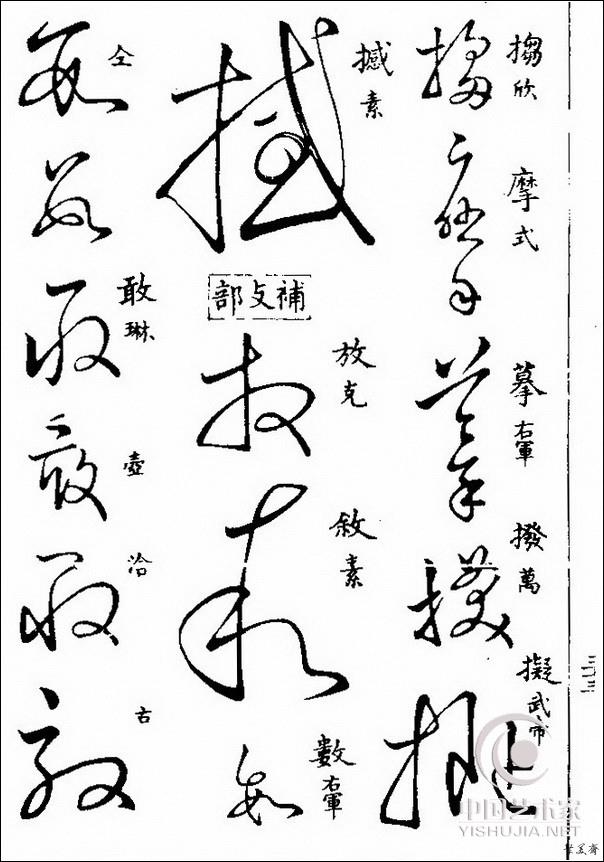 搊欣
摩式
摹右軍
撥萬
擬武帝
撼素
補攴部
放克
敘素
數右軍
仝
敢琳
壺
洽
古
中国艺术家
YISHUJIA.NET